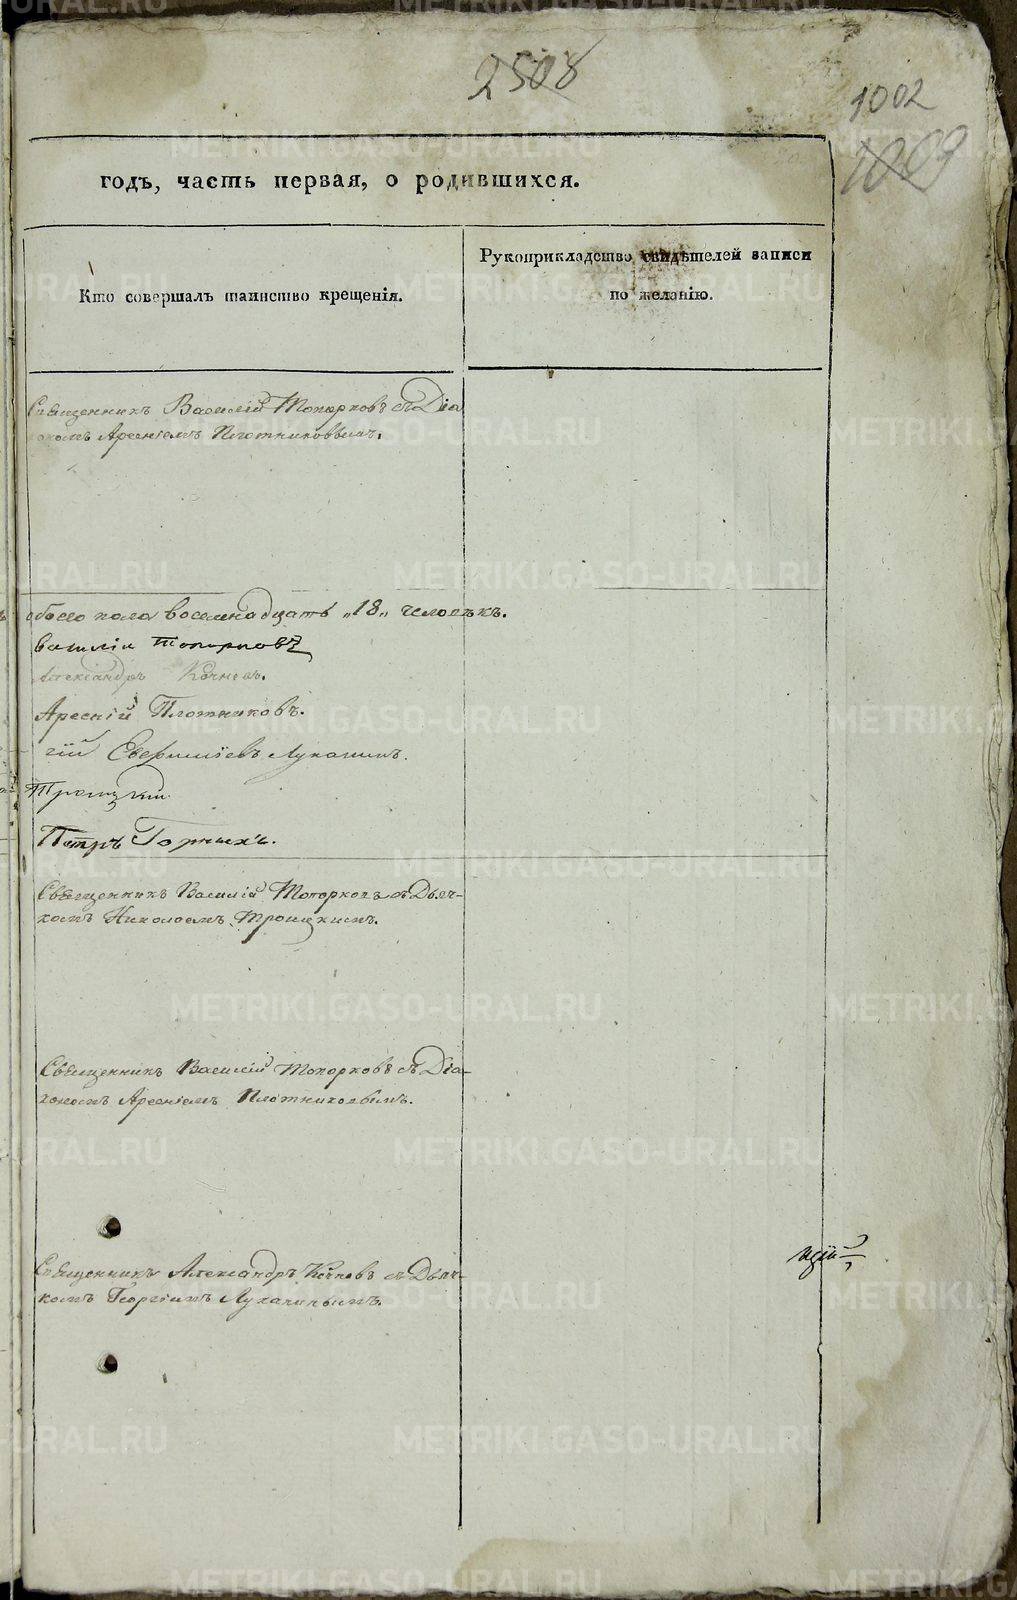 2508
1002
1009
годъ, часть первая, о родившихся.
Кто совершалъ таинство крещенія.
Рукоприкладство свидѣтелей записи
по желанію.
Священникъ Василій Топорковъ съ Діа
кономъ Арсеніемъ Плотниковымъ.
обоего пола восемнадцать „18„ человѣкъ.
Василій Топорковъ
Александръ
Арсеній Плотниковъ.
гій Луканинъ.
Троицкій
Петръ Горныхъ.
Священникъ Василій Топорковъ съ Дьяч-
комъ Николаемъ Троицкимъ.
Священникъ Василій Топорковъ съ Діа-
кономъ Арсеніемъ Плотниковымъ.
Священникъ Александръ съ Дьяч-
комъ Георгіемъ Луканинымъ.
METRIKI.GASO-URAL.RU